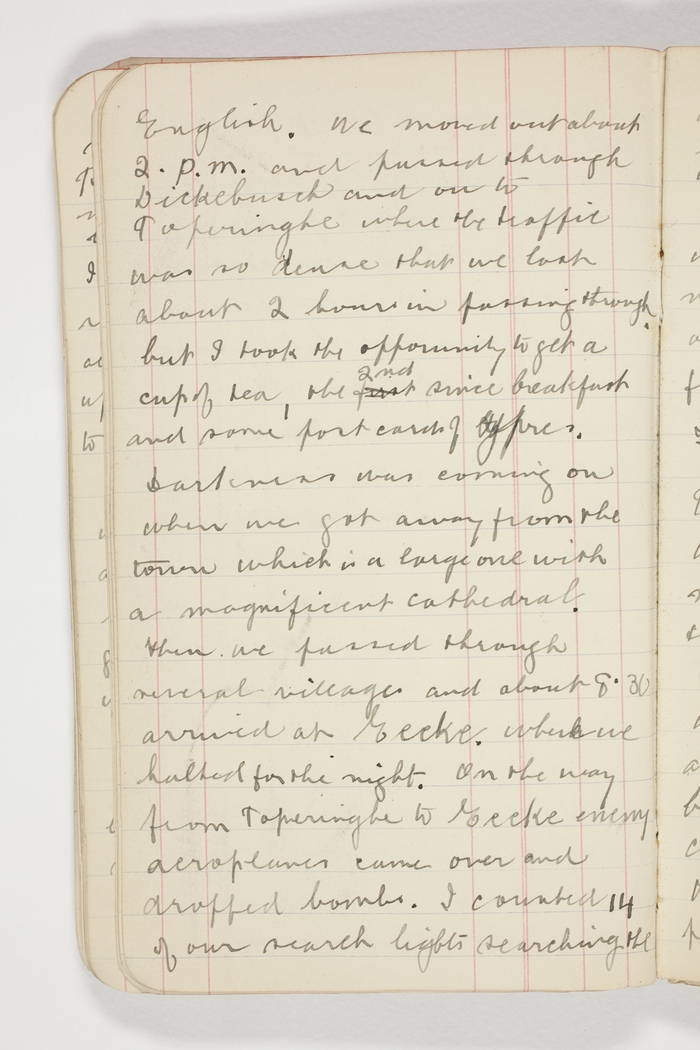 English. We moved out about
2. p.m. and passed through
Dickebusch and on to
Toperinghe where the traffic
was so dense that we lost
about 2 hours in passing through,
but I took the opporunity to get a
cup of tea, the first 2nd since breakfast
and some post cards of Ypres.
Darkness was coming on
when we got away from the
town which is a large one with
a magnificent cathedral.
Then we passed through
several villages and about 8.30
arrived at Eecke. where we
halted for the night. On the way
from Toperinghe to Eecke enemy
aeroplanes came over and
dropped bombs. I counted 14
of our search lights searching the